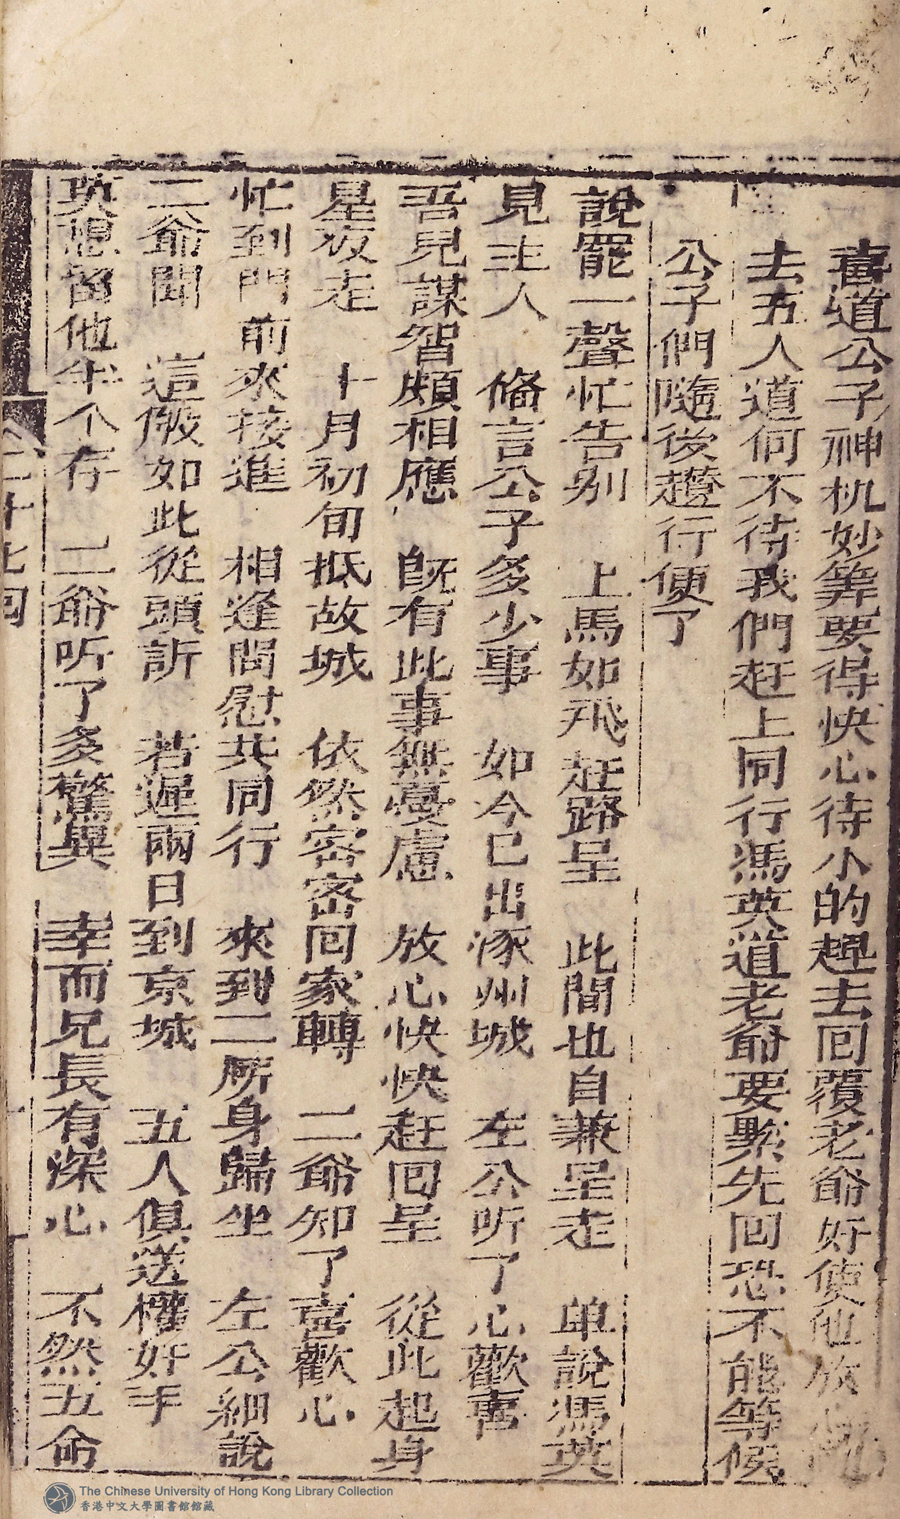 喜道公子神机妙筭要得快心待小的趕去回覆老爺好使他放心
去五人道何不待我們赶上同行馮英道老爺要緊先回恐不能等候
公子們隨後趲行便了
說罷一聲忙告别　上馬如飛赶路呈　此間也自兼呈走　单說馮英
見主人　俻言公子多少事　如今已出涿州城　左公听了心歡喜
吾兒謀智頗相應　旣有此事無憂慮　放心快快赶回呈　從此起身
星夜走　十月初旬抵故城　依然密密回家轉　二爺知了喜歡心
忙到門前來接進　相逢問慰共同行　來到二所身歸坐　左公細說
二爺聞　這般如此從頭訴　若遲兩日到京城　五人俱送權奸手
英想留他年个存　二爺听了多驚異　幸而兄長有深心　不然五命
二十七回
The Chinese University of Hong Kong Library Collection
香港中文大學圖書館館藏